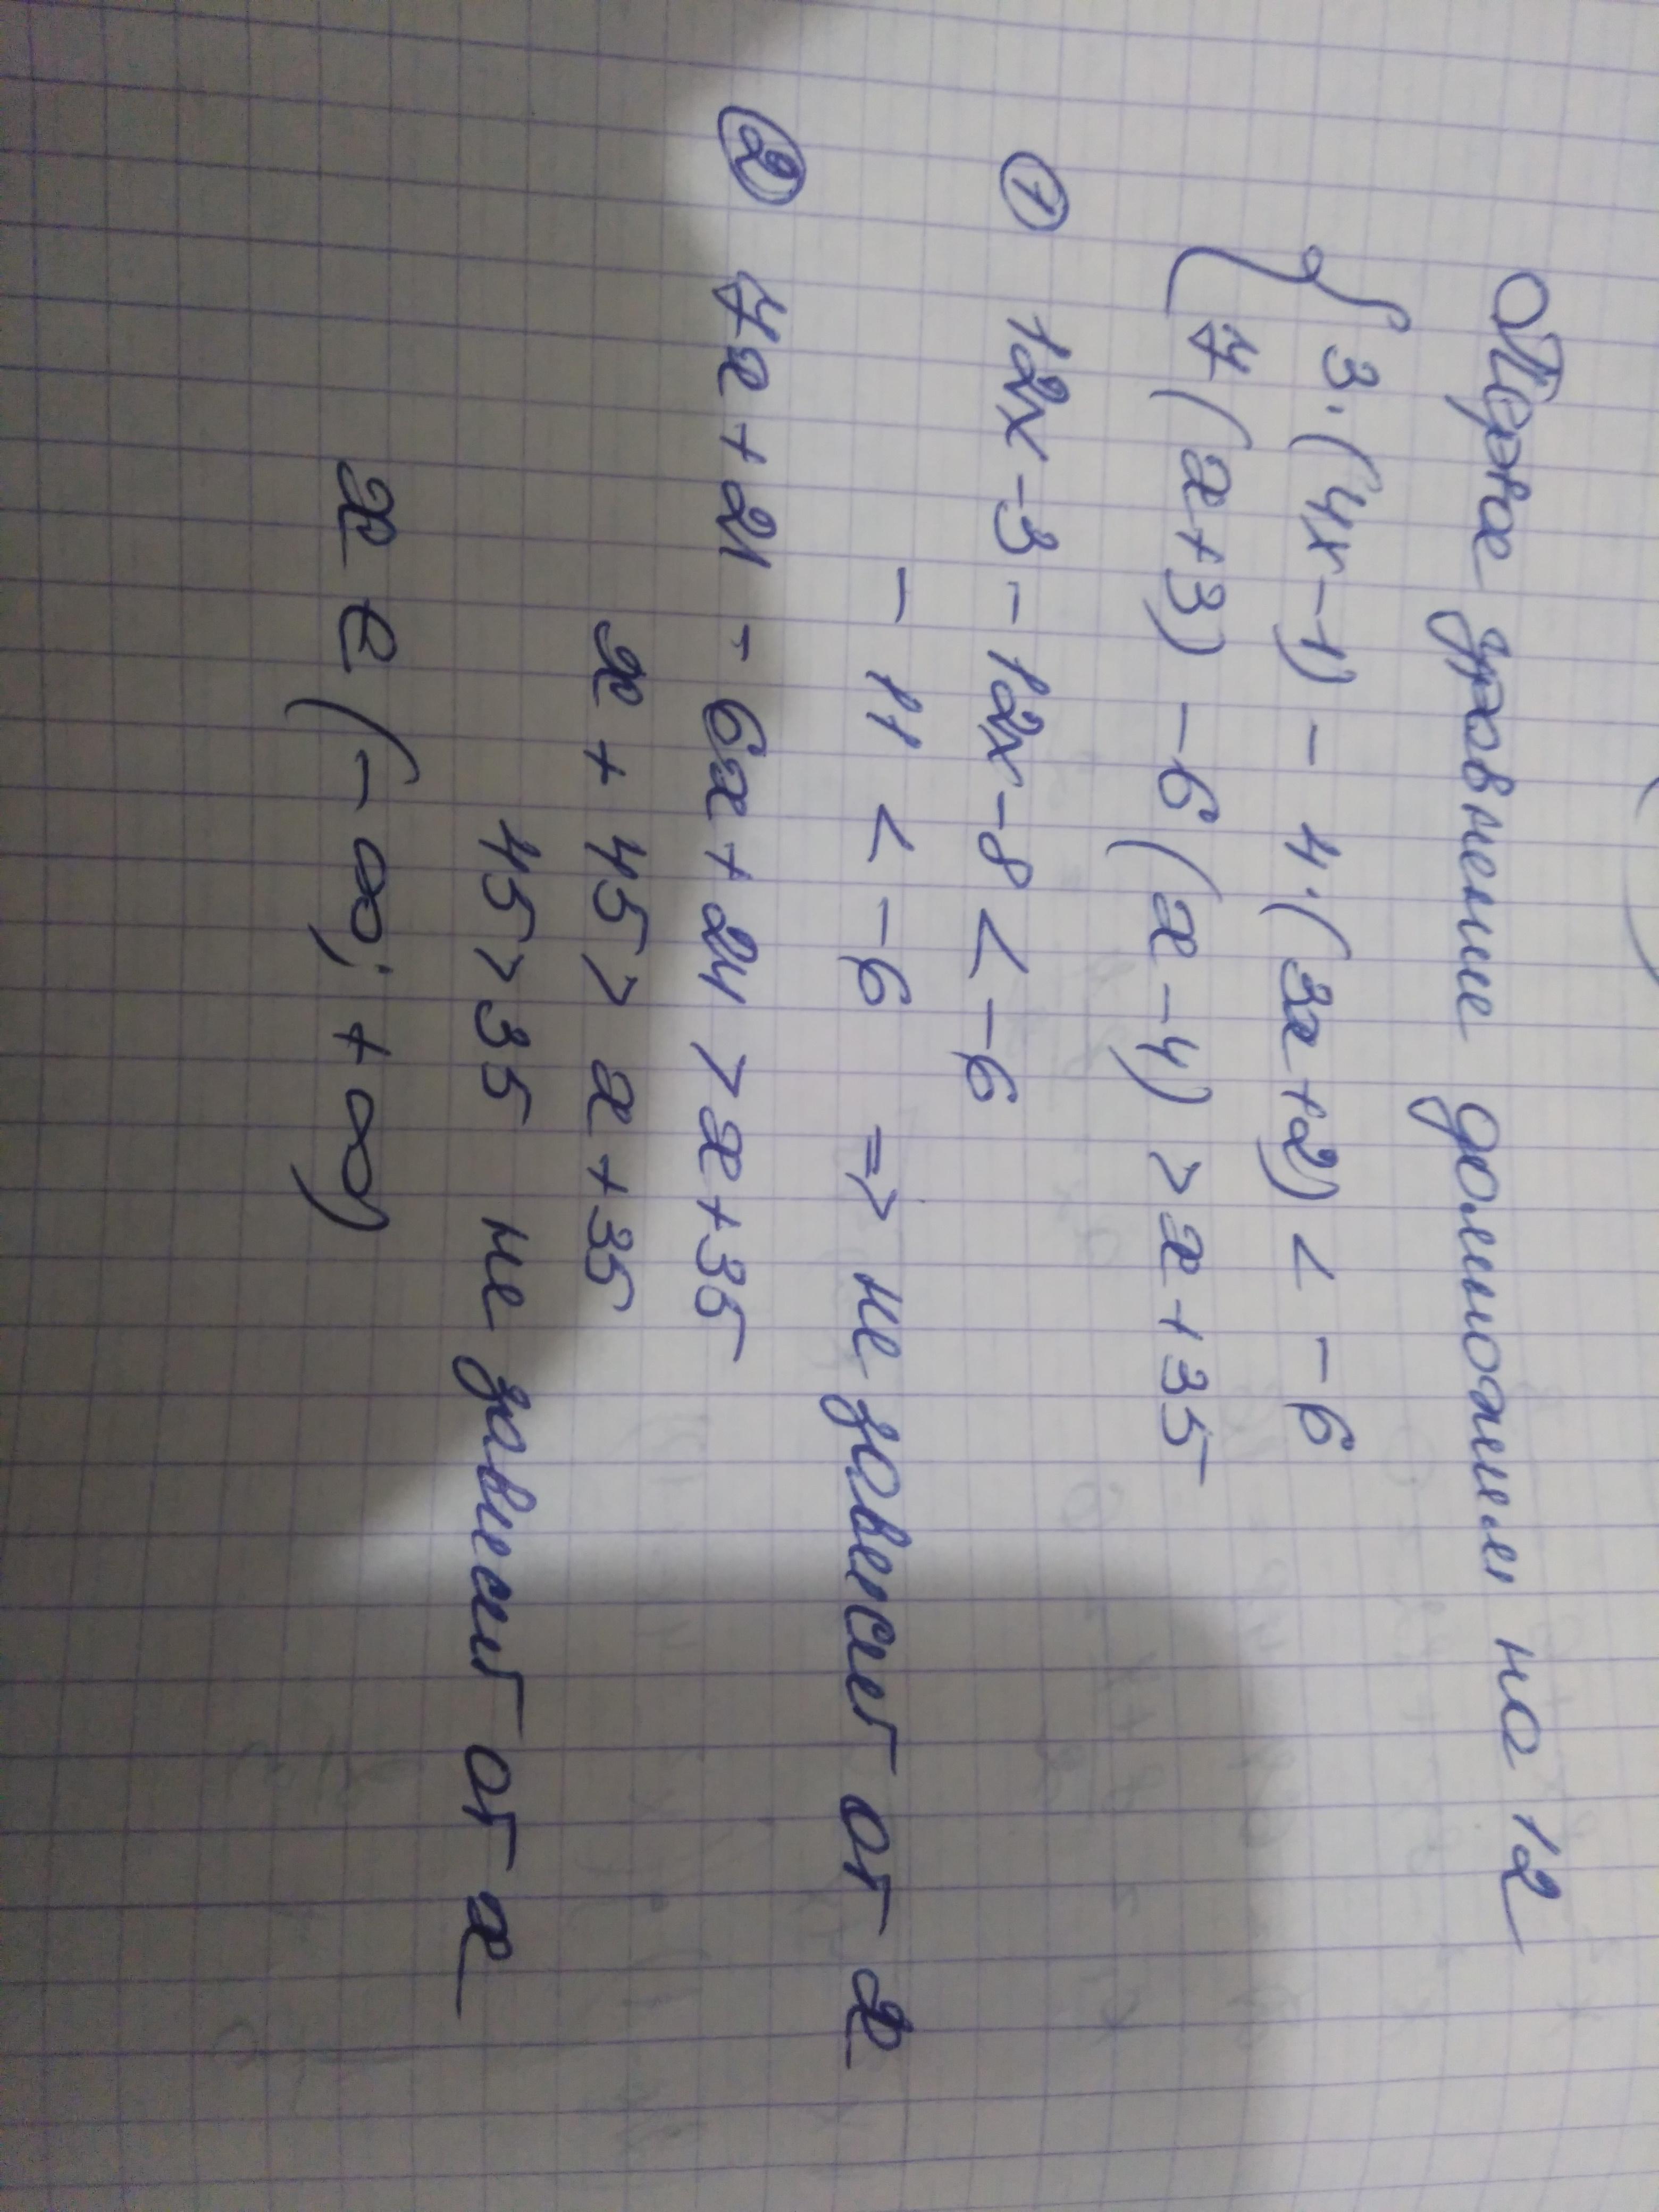 Первое уравнение домножим на 12
{ 3·(4x-1) - 4·(3x+2) < -6
7(x+3) -6(x-4) > x+35
① 12x-3-12x-8 < -6
-11 < -6 => не зависит от x
② 7x+21-6x+24 > x+35
x+45 > x+35
45>35 не зависит от x
x ∈ (-∞; +∞)